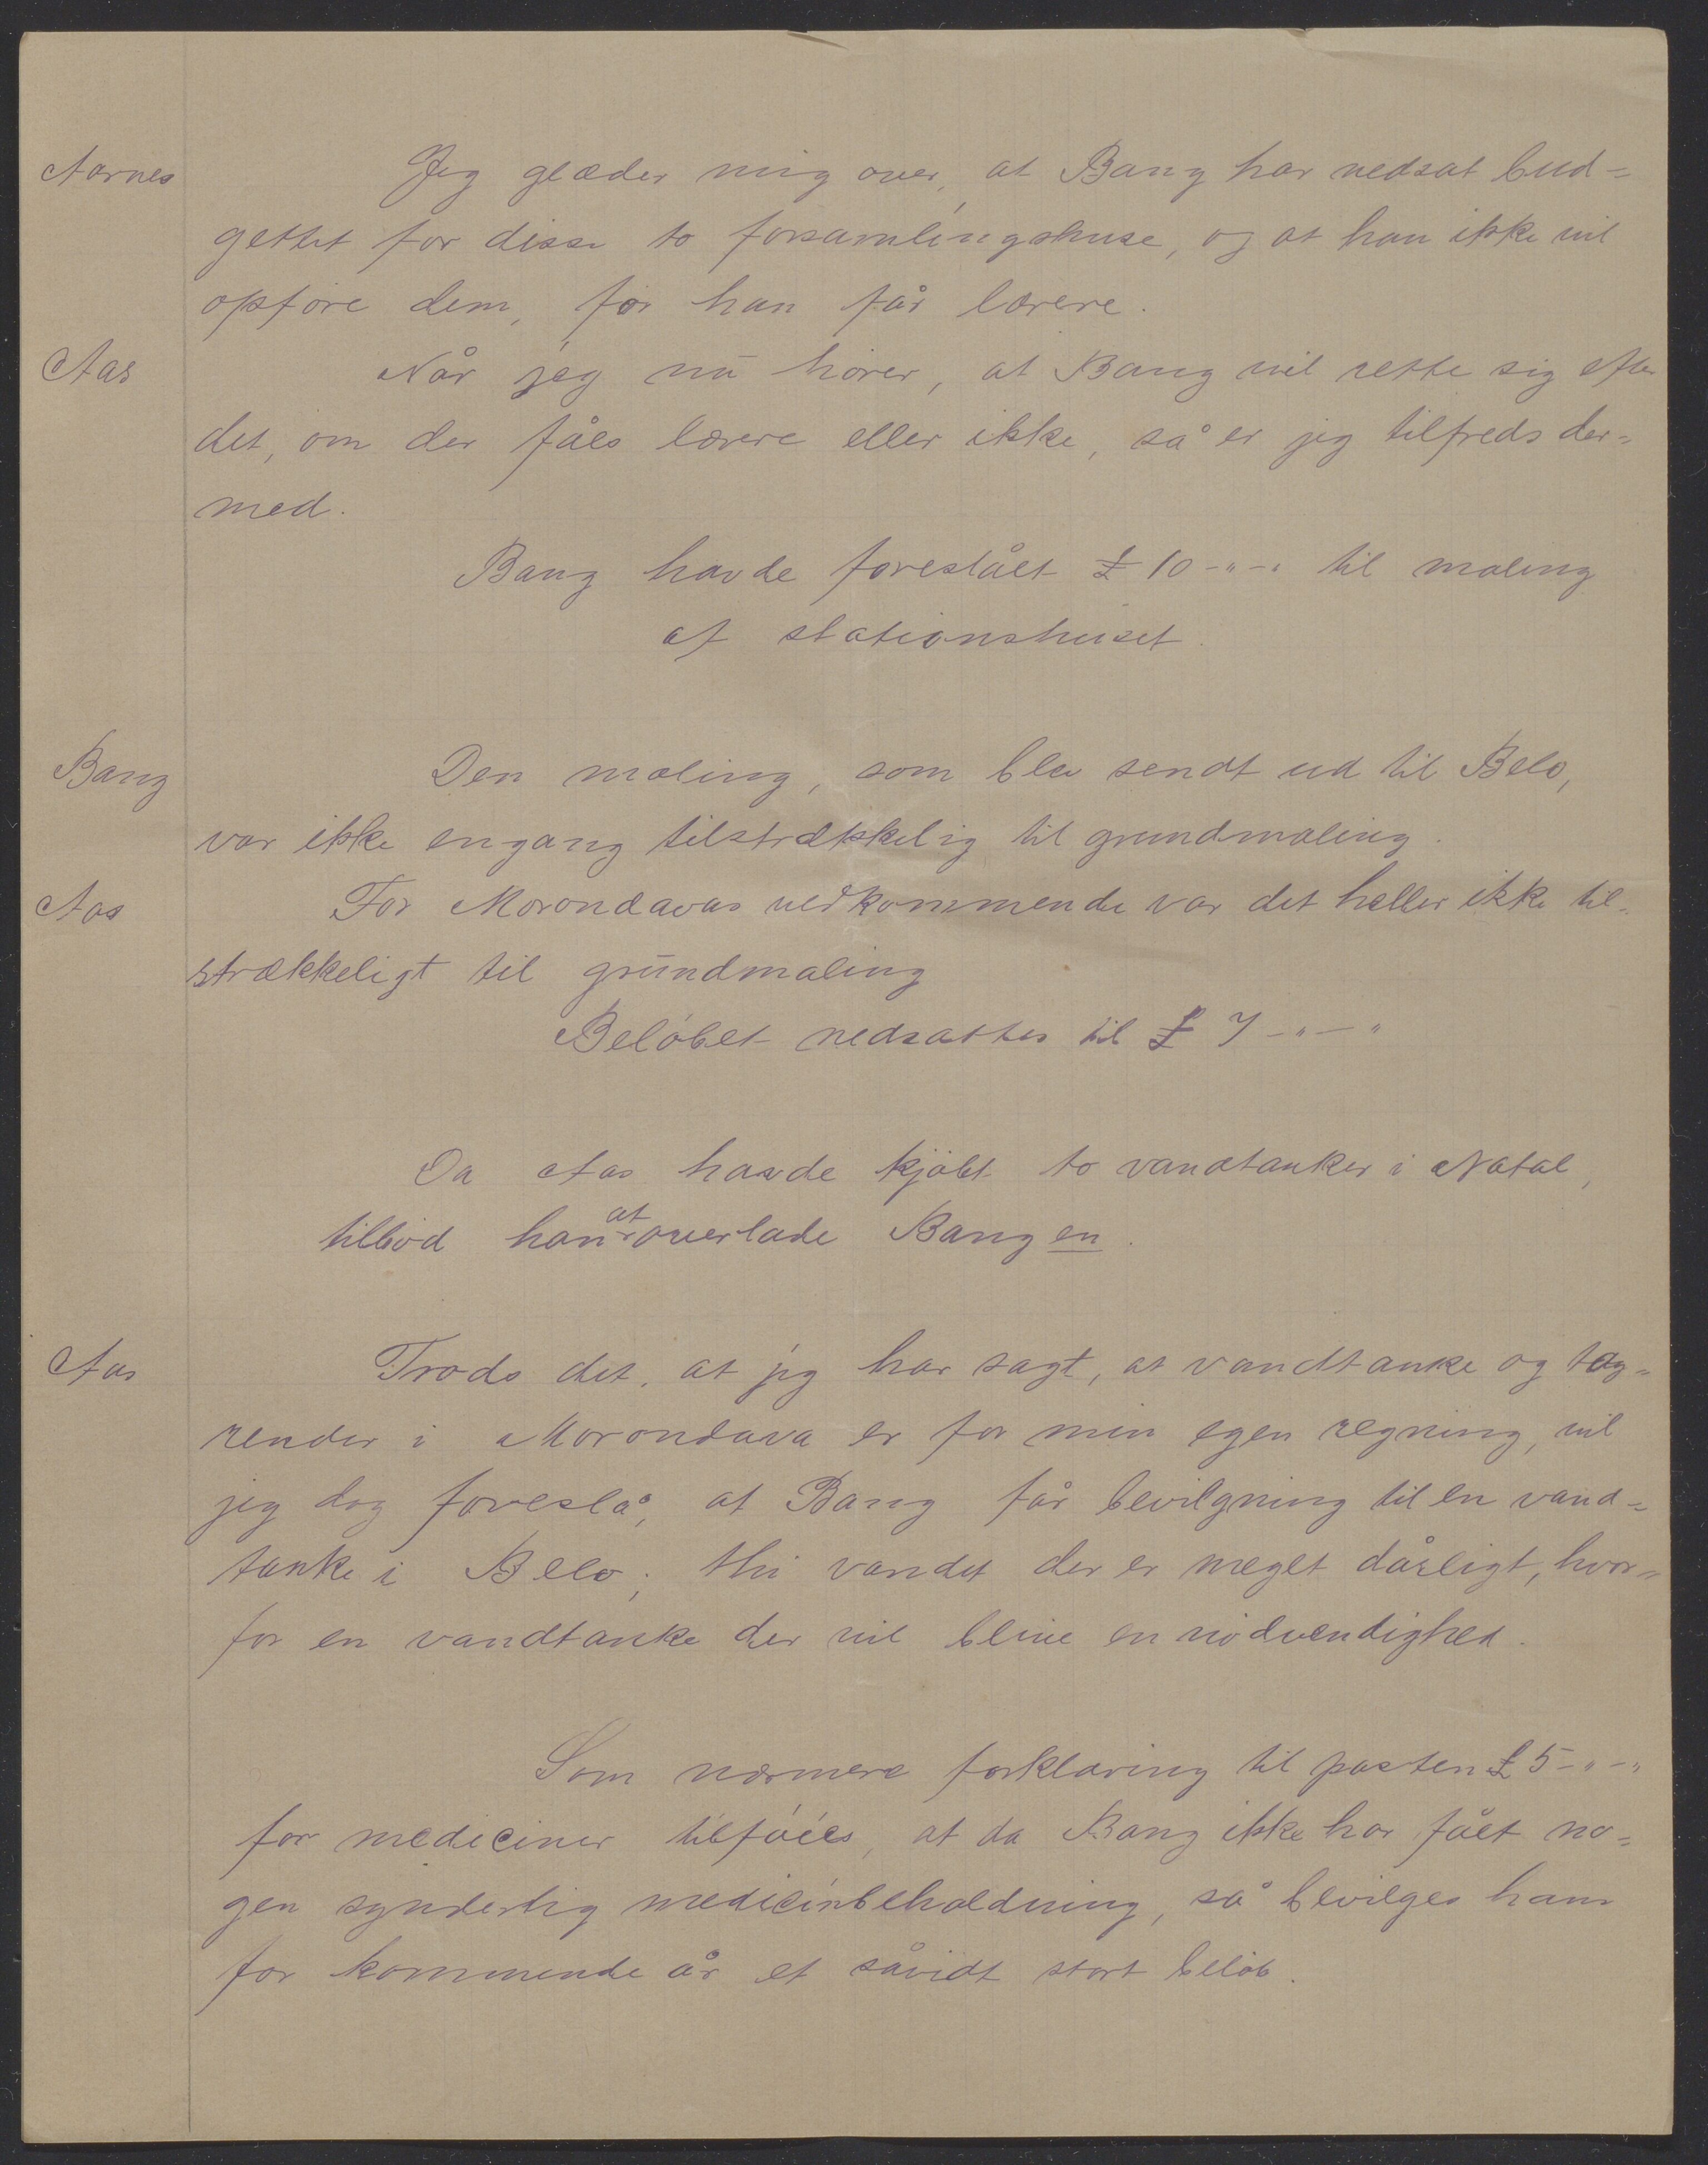 Aarnes Jeg glæder mig over, at Bang har nedsat bud=
gettet for disse to forsamlingshuse, og at han ikke vil
opføre dem, før han får lærere.
Aas Når jeg nu hører, at Bang vil rette sig efter
det, om der fåes lærere eller ikke, så er jeg tilfreds der=
med.
Bang havde foreslået £ 10-"-" til maling
af stationshuset.
Bang Den maling, som blev sendt ud til Belo,
var ikke engang tilstrækkelig til grundmaling.
Aas For Morondavas vedkommende var det heller ikke til=
strækkeligt til grundmaling
Beløbet nedsattes til £ 7-"-"
Da Aas havde kjøbt to vandtanker i Natal,
tilbød han at overlade Bang en.
Aas Trods det, at jeg har sagt, at vandtanke og tag=
render i Morondava er for min egen regning, vil
jeg dog foreslå, at Bang får bevilgning til en vand=
tanke i Belo; thi vandet der er meget dårligt, hvor=
for en vandtanke der vil blive en nødvendighed.
Som nærmere forklaring til posten £ 5-"-"
for mediciner tilføies, at da Bang ikke har fået no=
gen synderlig medicinbeholdning, så bevilges ham
for kommende år et såvidt stort beløb.